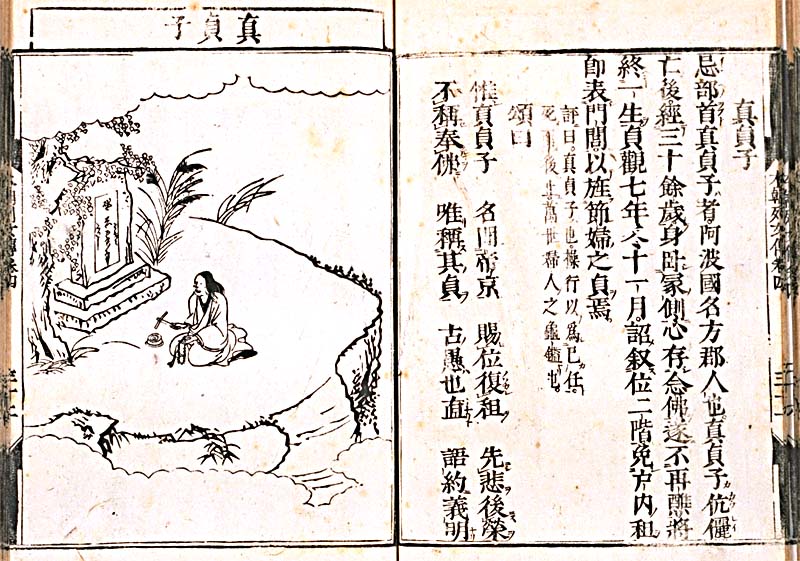 真貞子
忌部首真貞子者阿波國名方郡人也真貞子伉儷
亡後經三十餘歲身臥冢側心存念佛遂不再醮將
終一生貞觀七年冬十一月詔叙位二階免戶内租
即表門閭以旌節婦之貞焉
評曰真貞子也操行以為己任。
死而後止萬世婦人之龜鑑也
頌曰
惟真貞子 名聞帝京 賜位復租 先悲後榮
不稱奉佛 唯稱其貞 古愚也直 語約義明
真貞子